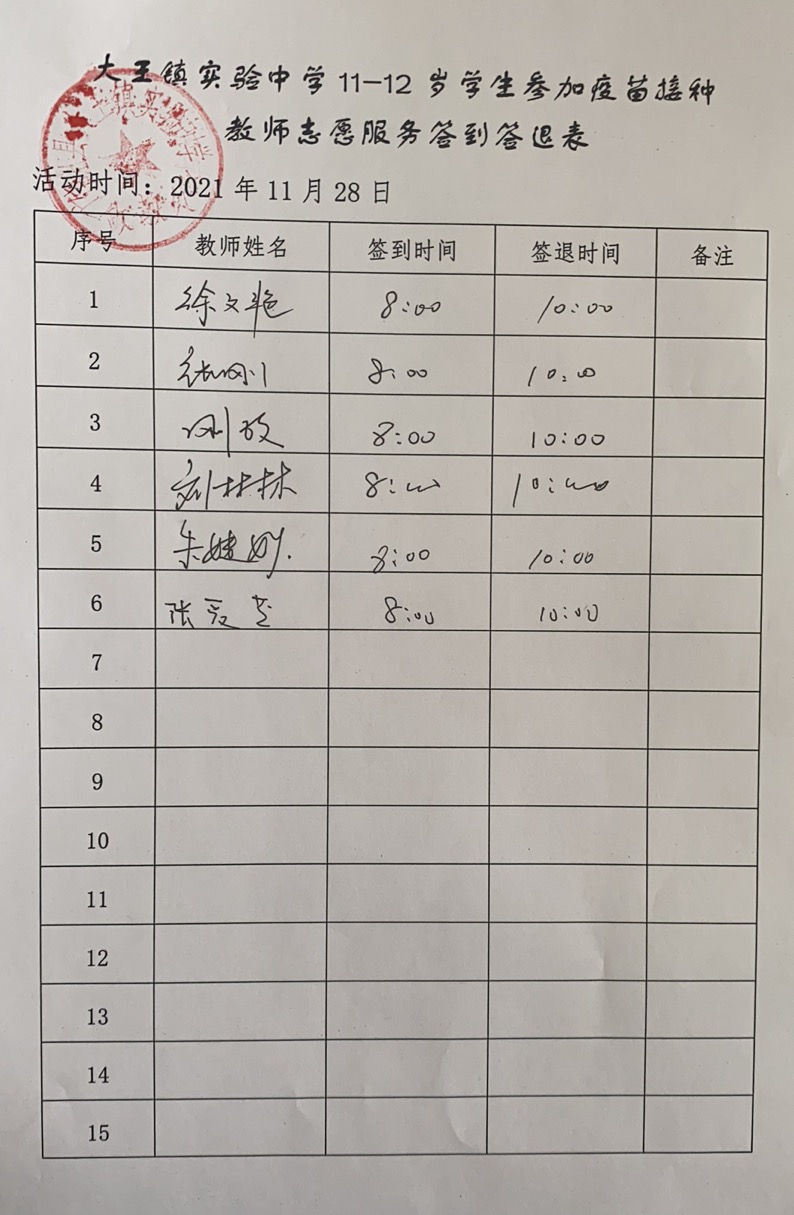 大王镇实验中学11-12岁学生参加疫苗接种
教师志愿服务签到签退表
活动时间：2021年11月28日
序号 教师姓名 签到时间 签退时间 备注
1 徐文艳 8:00 10:00
2 张刚 8:00 10:00
3 8:00 10:00
4 刘林林 8:00 10:00
5 朱婕妤. 8:00 10:00
6 张爱 8:00 10:00
7
8
9
10
11
12
13
14
15